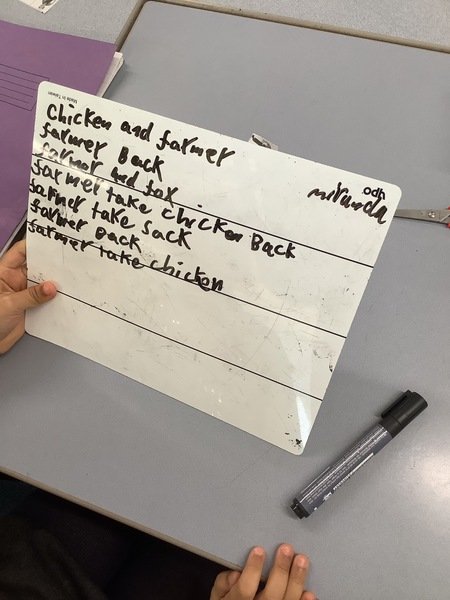 Made in Taiwan
Chicken and farmer
farmer Back
farmer and fox
farmer take chicken Back
farmer take sack
farmer Back
farmer take chicken
miranda